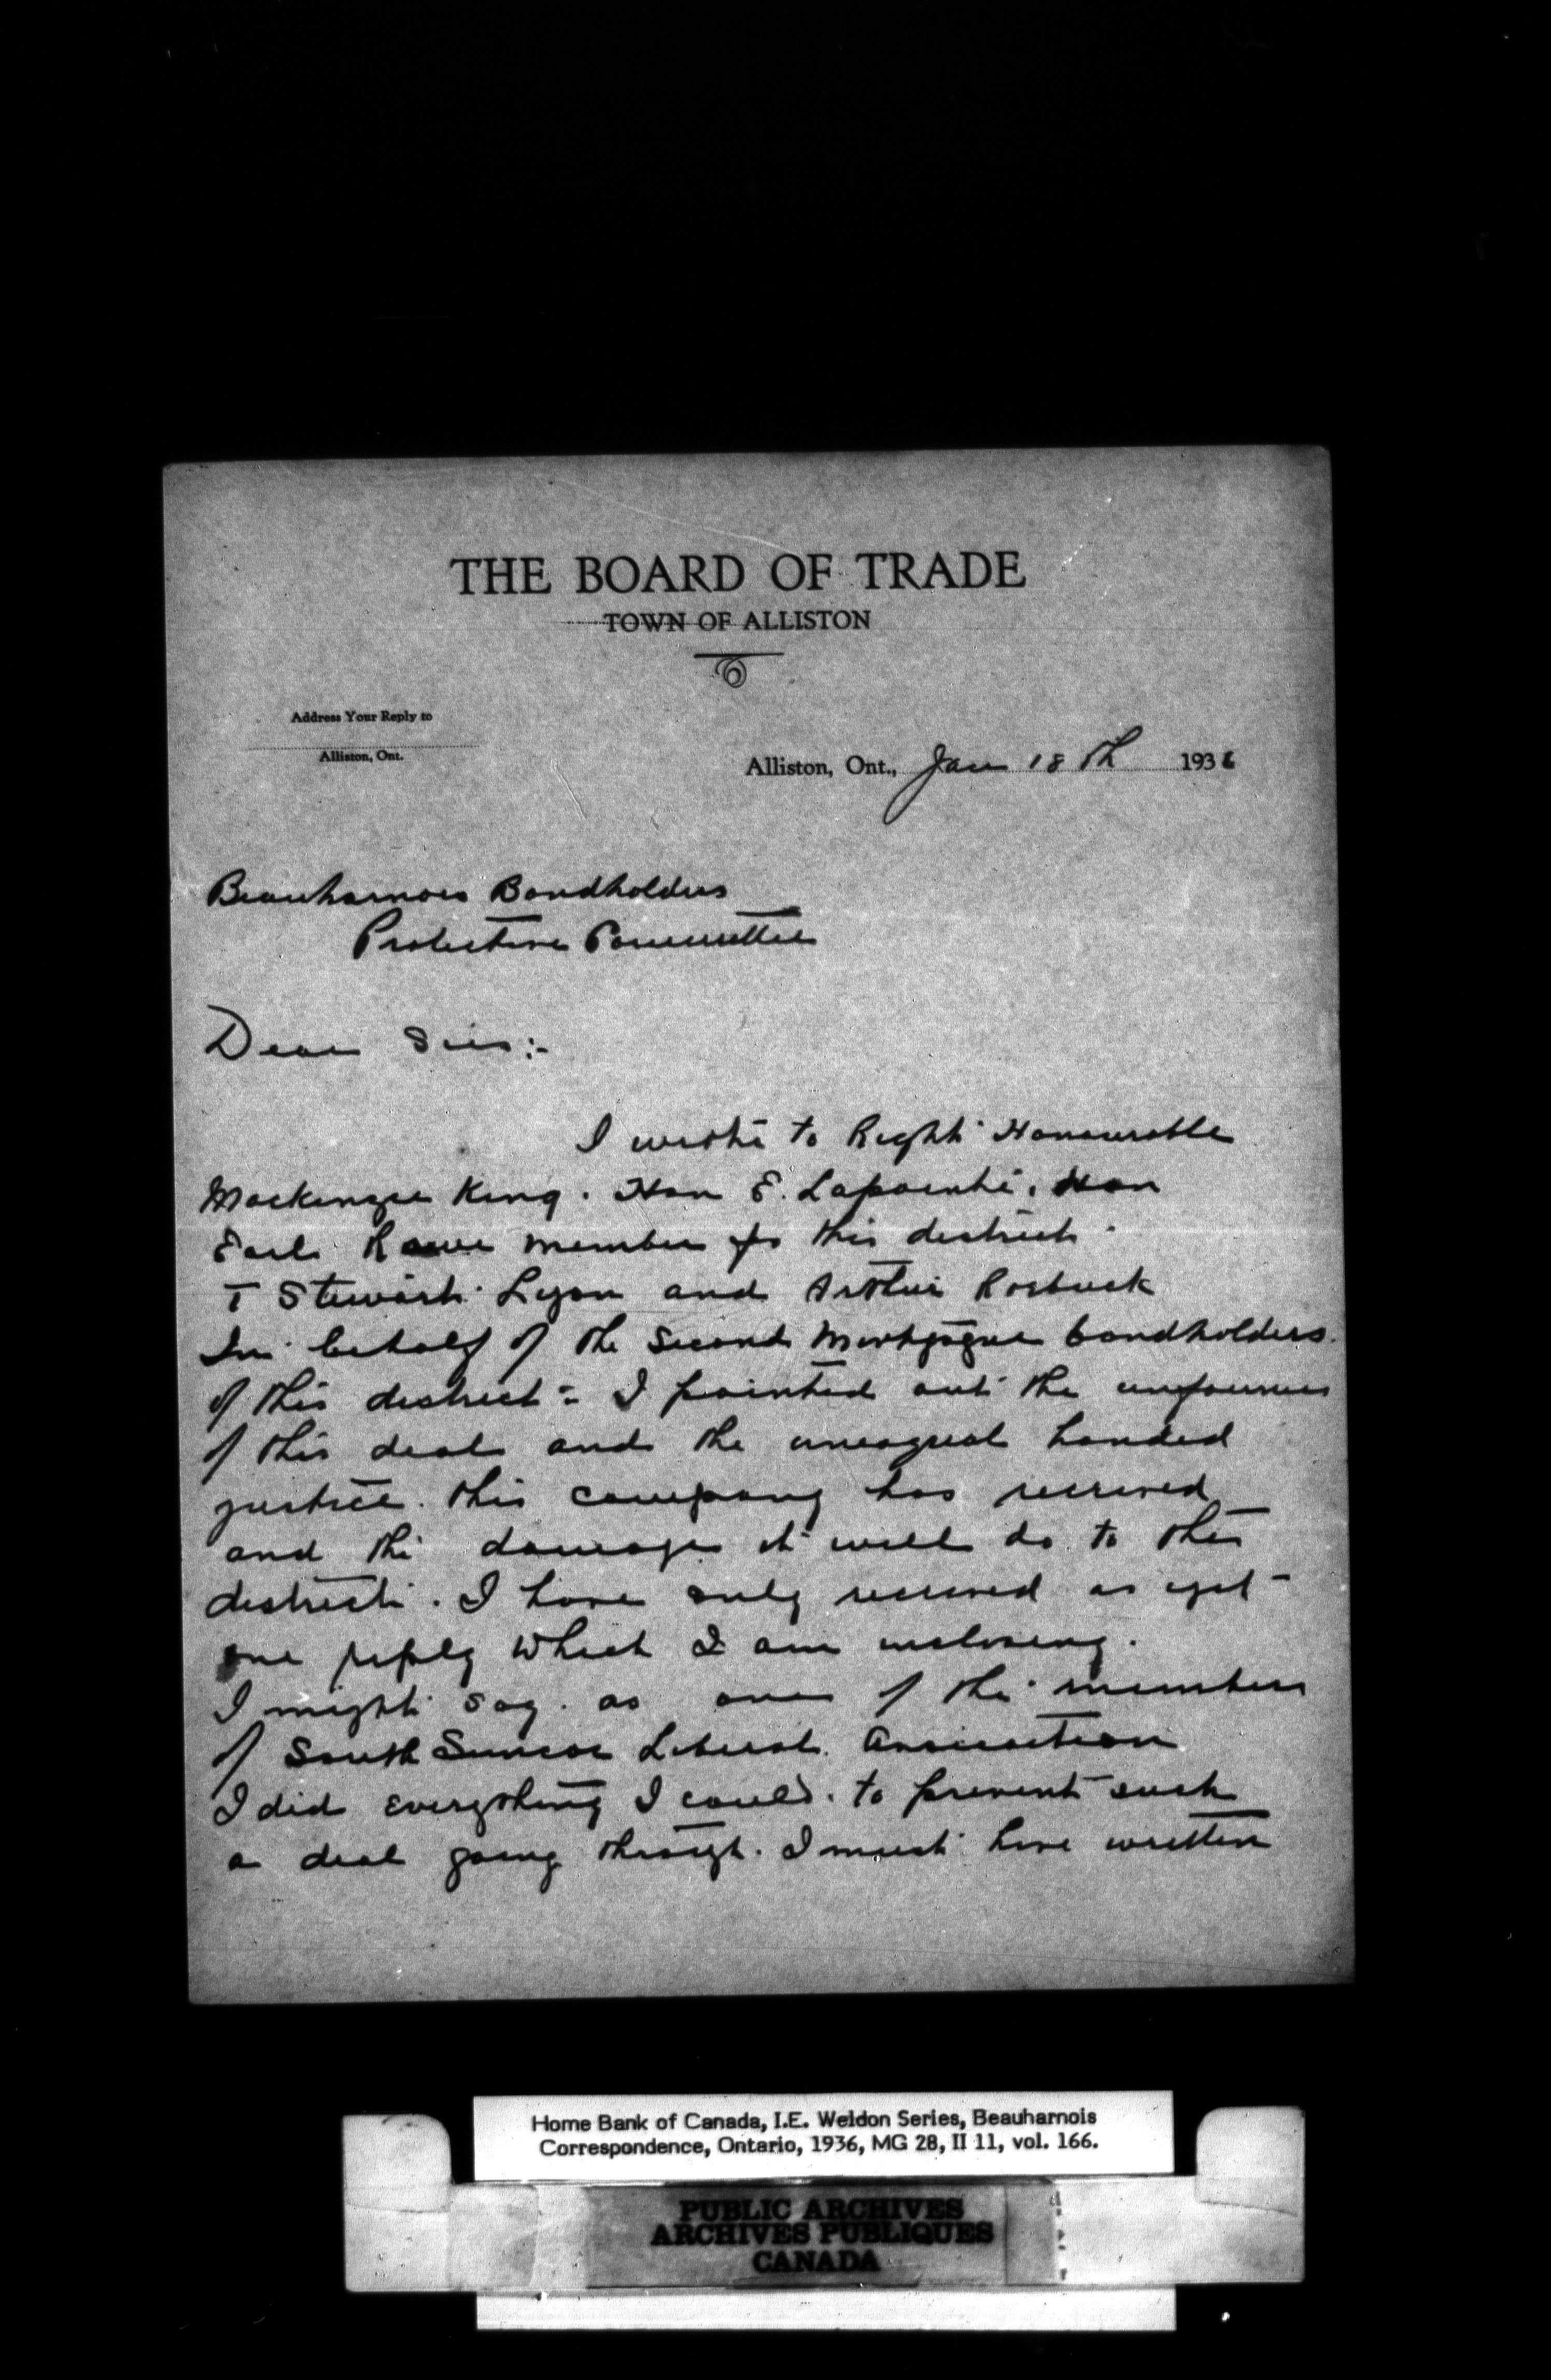 THE BOARD OF TRADE
TOWN OF ALLISTON
Address Your Reply to
Alliston, Ont.
Alliston, Ont., Jan 18th 1936
Beauharnois Bondholders
Protective Committee
Dear Sirs:-
I wrote to Right Honourable
Mackenzie King. Hon E. Lapointe, Hon
Earl Rowe member for this district.
T Stewart Lyon and Arthur Roebuck
In behalf of the Second Mortgage bondholders.
of this district - I pointed out the unfairness
of this deal and the unequal handed
justice. this company has received
and the damage it will do to this
district. I have only received as yet
one reply which I am enclosing.
I might say. as one of the members
of South Simcoe Liberal. Association
I did everything I could. to prevent such
a deal going through. I must have written
Home Bank of Canada, I.E. Weldon Series, Beauharnois
Correspondence, Ontario, 1936, MG 28, II 11, vol. 166.
PUBLIC ARCHIVES
ARCHIVES PUBLIQUES
CANADA